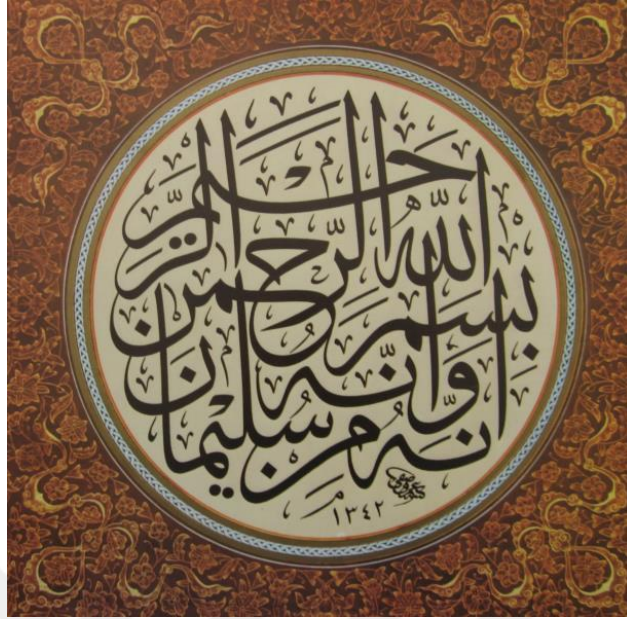 انه من سليمان
وانه
بسم الله الرحمن الرحيم
١٣٤٢